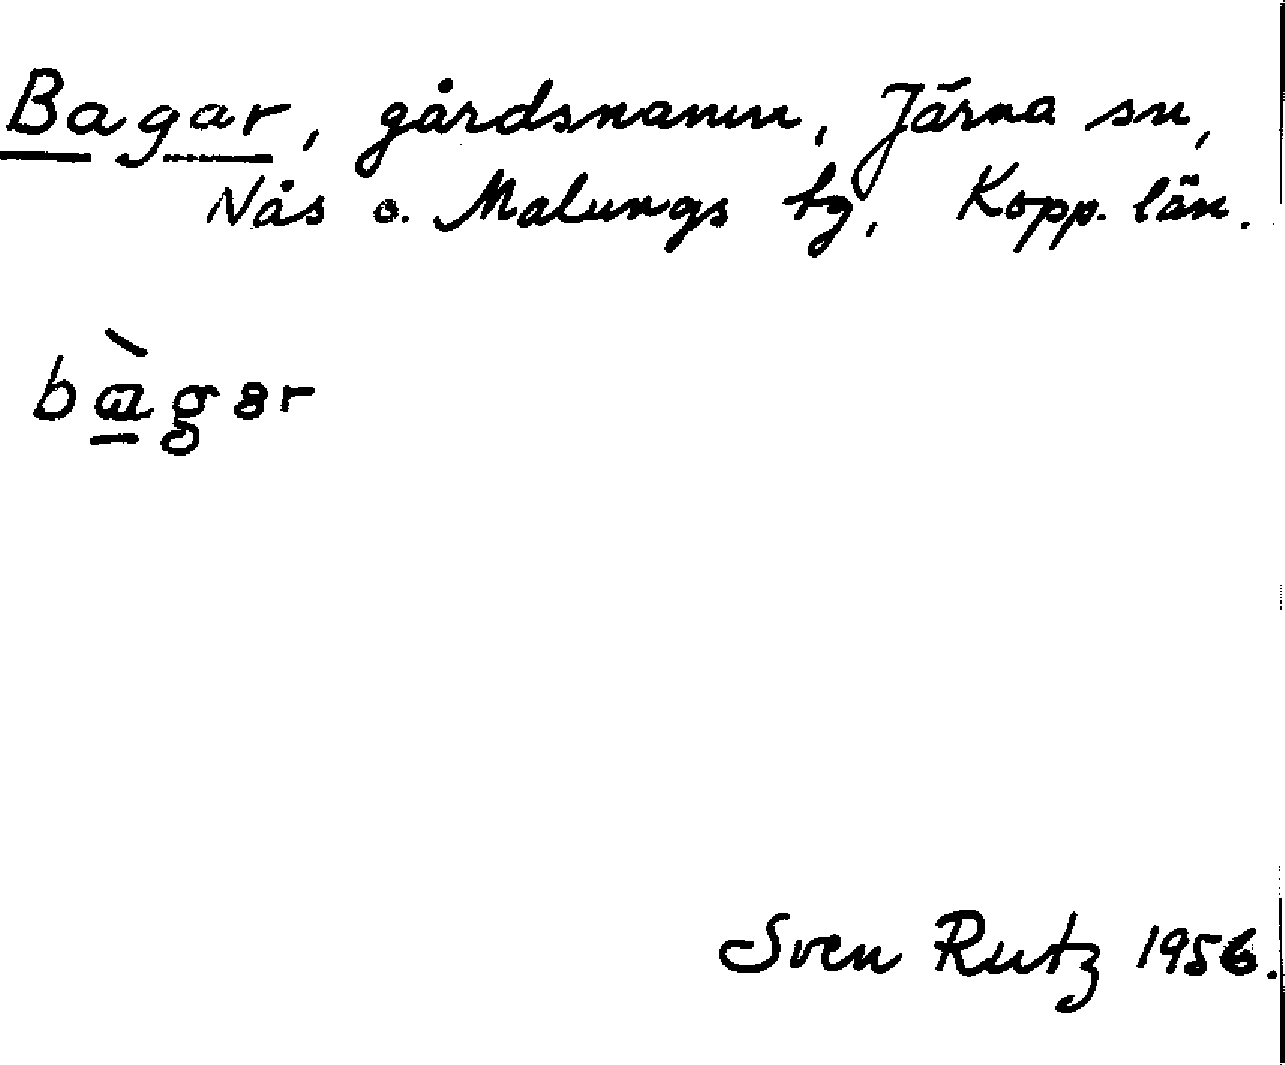 Bagar, gårdsnamn, Järna sn,
Nås o. Malungs tg, Kopp. län.
bàgar
Sven Rutz 1956.